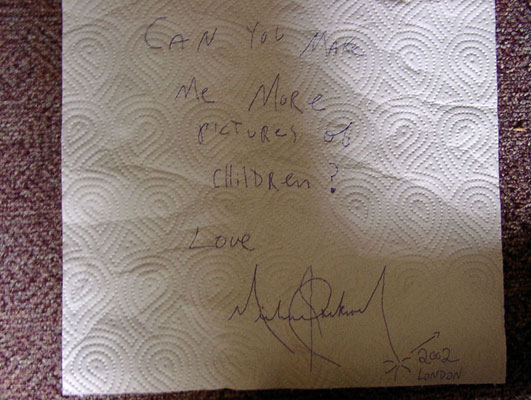 CAN YOU MAKE
Me MORe
PICTURES of
CHILDREN?
LOVE
Michael Jackson
2002
LONDON